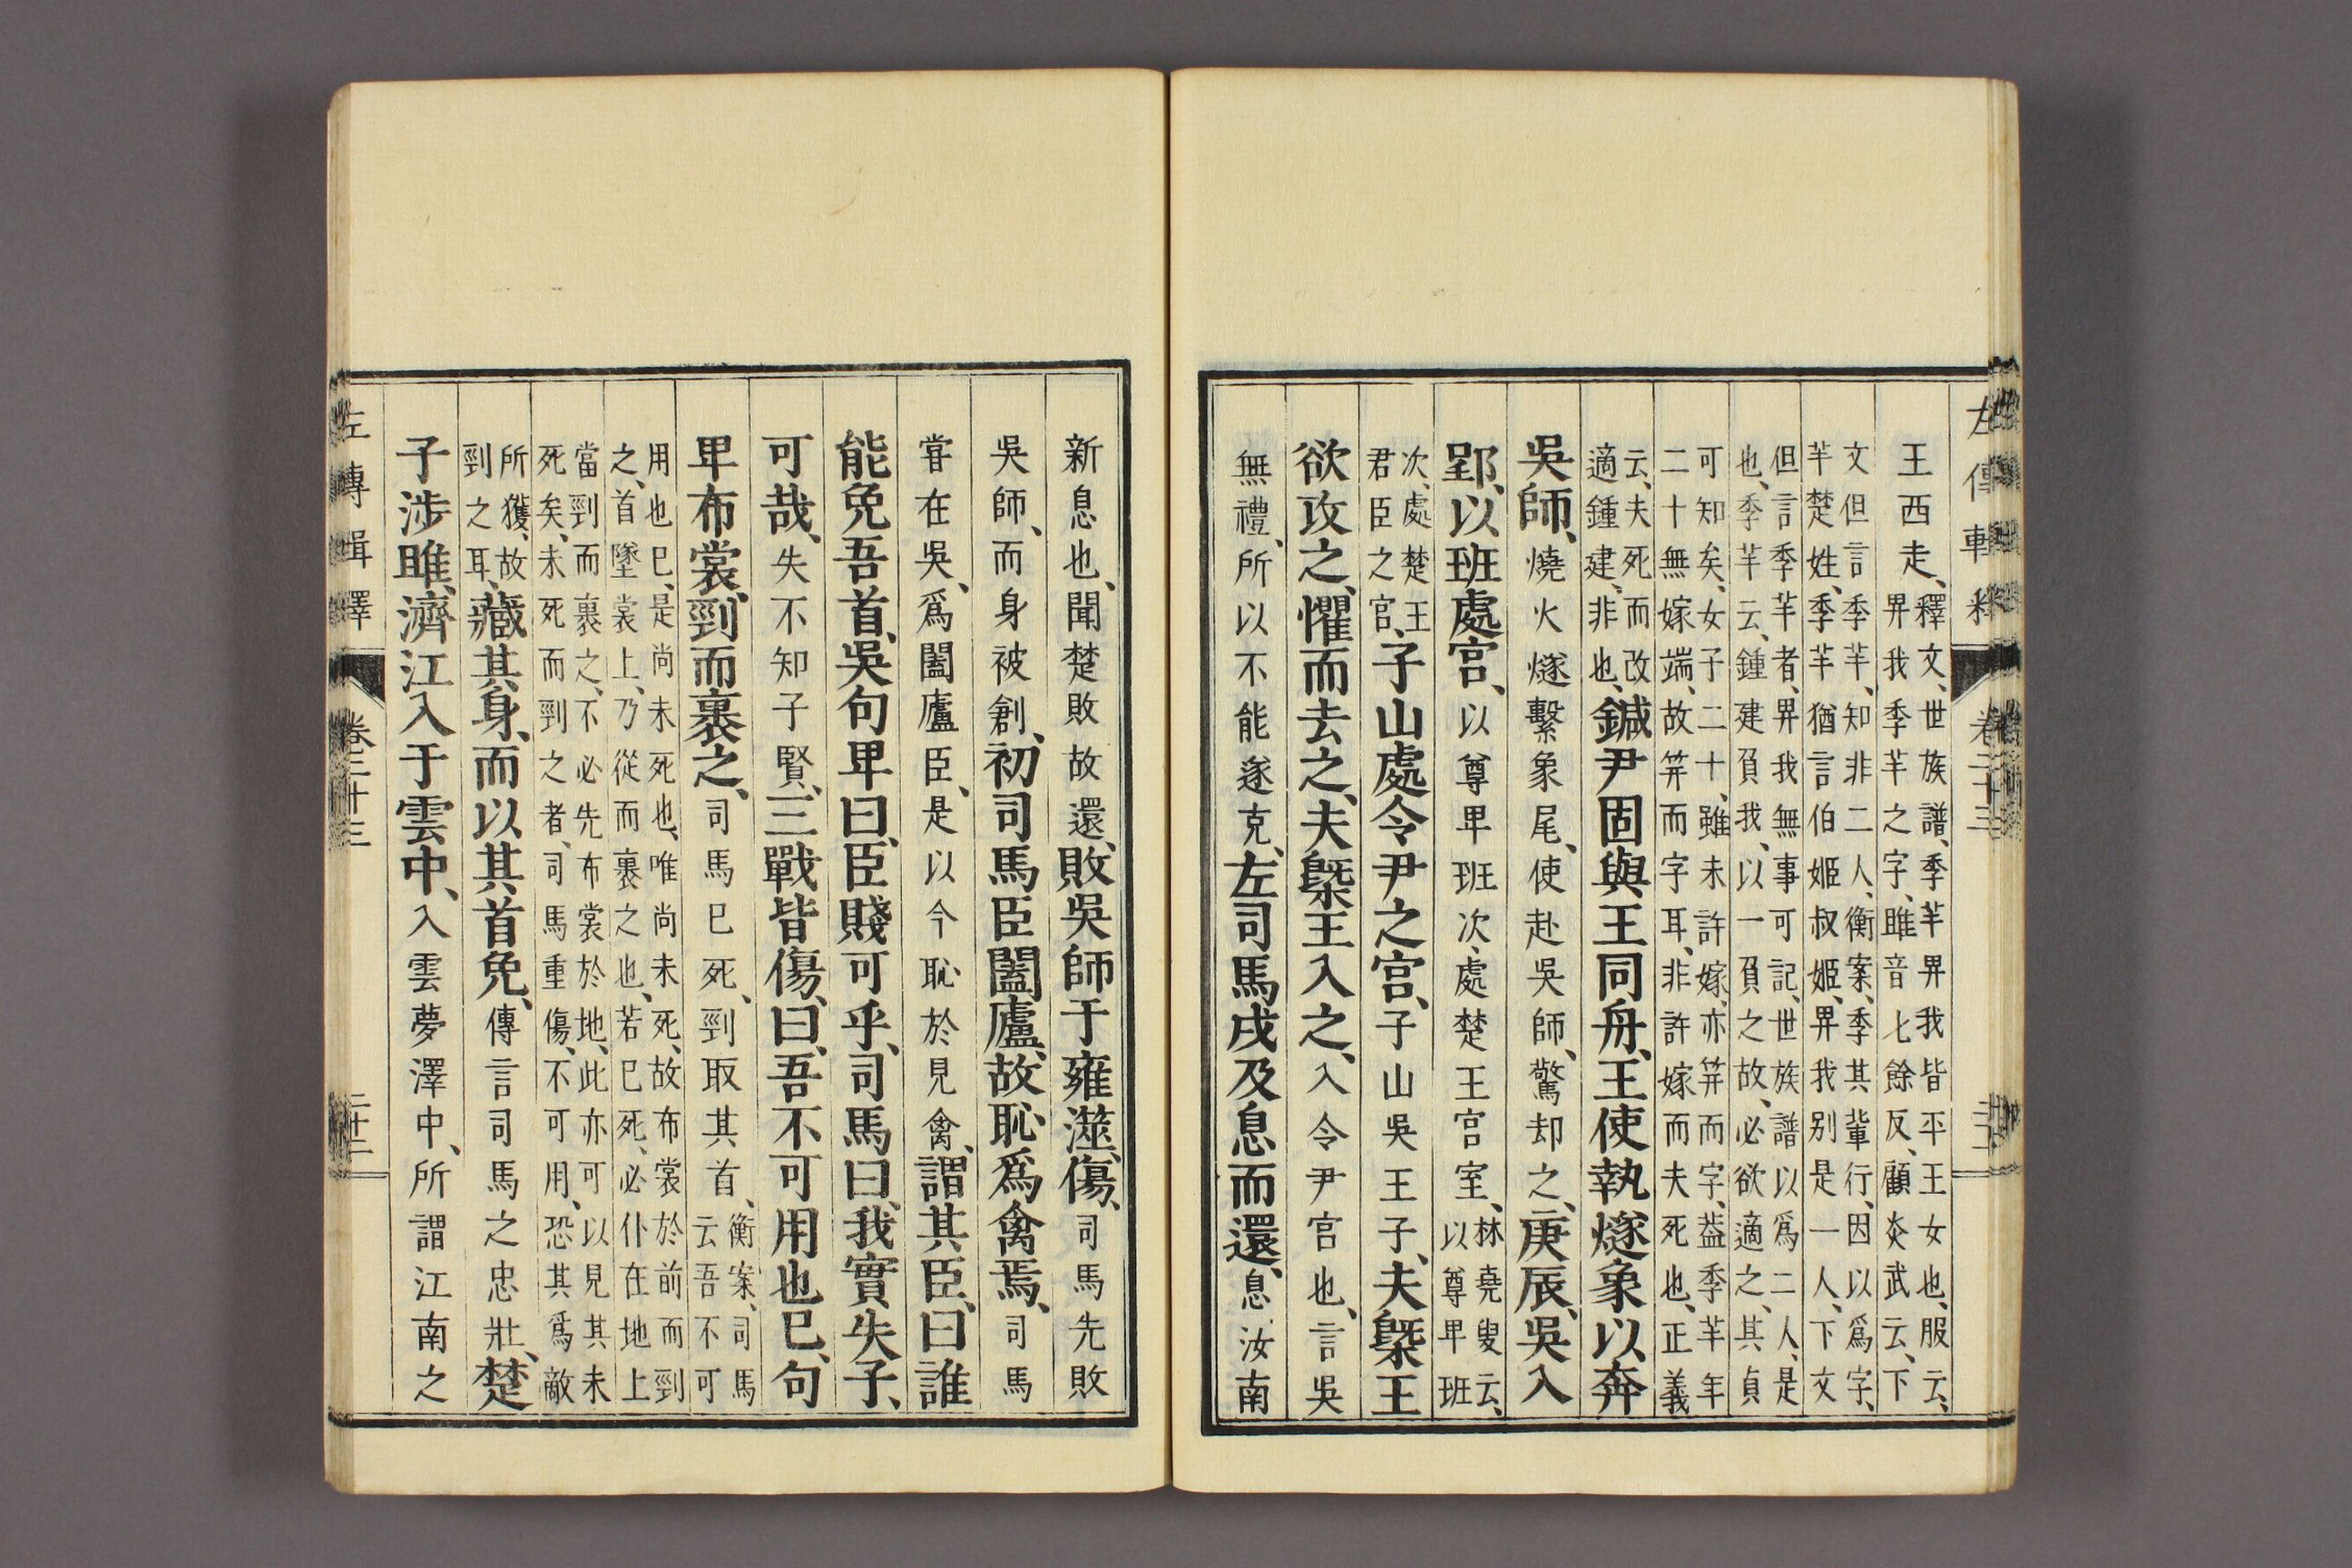 左傳輯釋　卷二十三　二十二
王西走、釋文、世族譜、季羋畀我皆平王女也、服云、
畀我季羋之字、雎音七餘反、顧炎武云、下
文但言季羋、知非二人、衡案、季其輩行、因以爲字、
羋楚姓、季羋猶言伯姬叔姬、畀我別是一人、下文
但言季羋者、畀我無事可記、世族譜以爲二人、是
也、季羋云、鍾建負我、以一負之故、必欲適之、其貞
可知矣、女子二十、雖未許嫁、亦笄而字、葢季羋年
二十無嫁端、故笄而字耳、非許嫁而夫死也、正義
云、夫死而改
適鍾建、非也、鍼尹固與王同舟、王使執燧象以奔
吳師、燒火燧繫象尾、使赴吳師、驚却之、庚辰、吳入
郢、以班處宮、以尊卑班次、處楚王宮室、林堯叟云、
以尊卑班
次、處楚王
君臣之宮、子山處令尹之宮、子山吳王子、夫槩王
欲攻之、懼而去之、夫槩王入之、入令尹宮也、言吳
無禮、所以不能遂克、左司馬戌及息而還、息、汝南
新息也、聞楚敗故還、敗吳師于雍澨、傷、司馬先敗
吳師、而身被創、初司馬臣闔廬、故恥爲禽焉、司馬
甞在吳、爲闔廬臣、是以今恥於見禽、謂其臣、曰誰
能免吾首、吳句卑曰、臣賤可乎、司馬曰、我實失子、
可哉、失不知子賢、三戰皆傷、曰、吾不可用也已、句
卑布裳、剄而裹之、司馬已死、剄取其首、衡案、司馬
云吾不可
用也已、是尚未死也、唯尚未死、故布裳於前而剄
之、首墜裳上、乃從而裹之也、若已死、必仆在地上
當剄而裹之、不必先布裳於地、此亦可以見其未
死矣、未死而剄之者、司馬重傷、不可用、恐其爲敵
所獲、故
剄之耳、藏其身、而以其首免、傳言司馬之忠壯、楚
子涉雎、濟江入于雲中、入雲夢澤中、所謂江南之
左傳輯釋　卷二十三　二十二